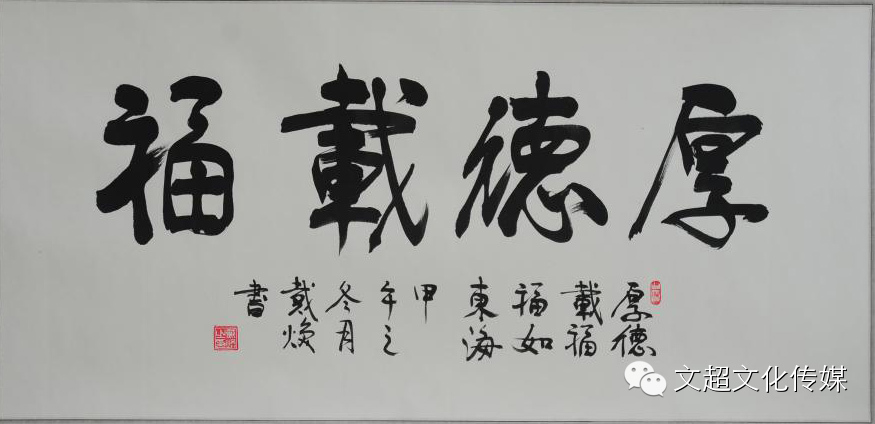 厚德載福
厚德
載福
福如
東海
甲
午之
冬月
戴煥
書
文超文化传媒